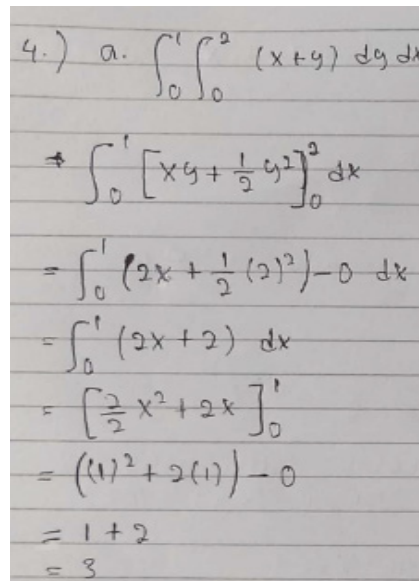 4.) a. ∫₀¹ ∫₀² (x+y) dy dx
∫₀¹ [xy + 1/2 y²]₀² dx
= ∫₀¹ (2x + 1/2 (2)²) - 0 dx
= ∫₀¹ (2x + 2) dx
= [2/2 x² + 2x]₀¹
= ((1)² + 2(1)) - 0
= 1 + 2
= 3